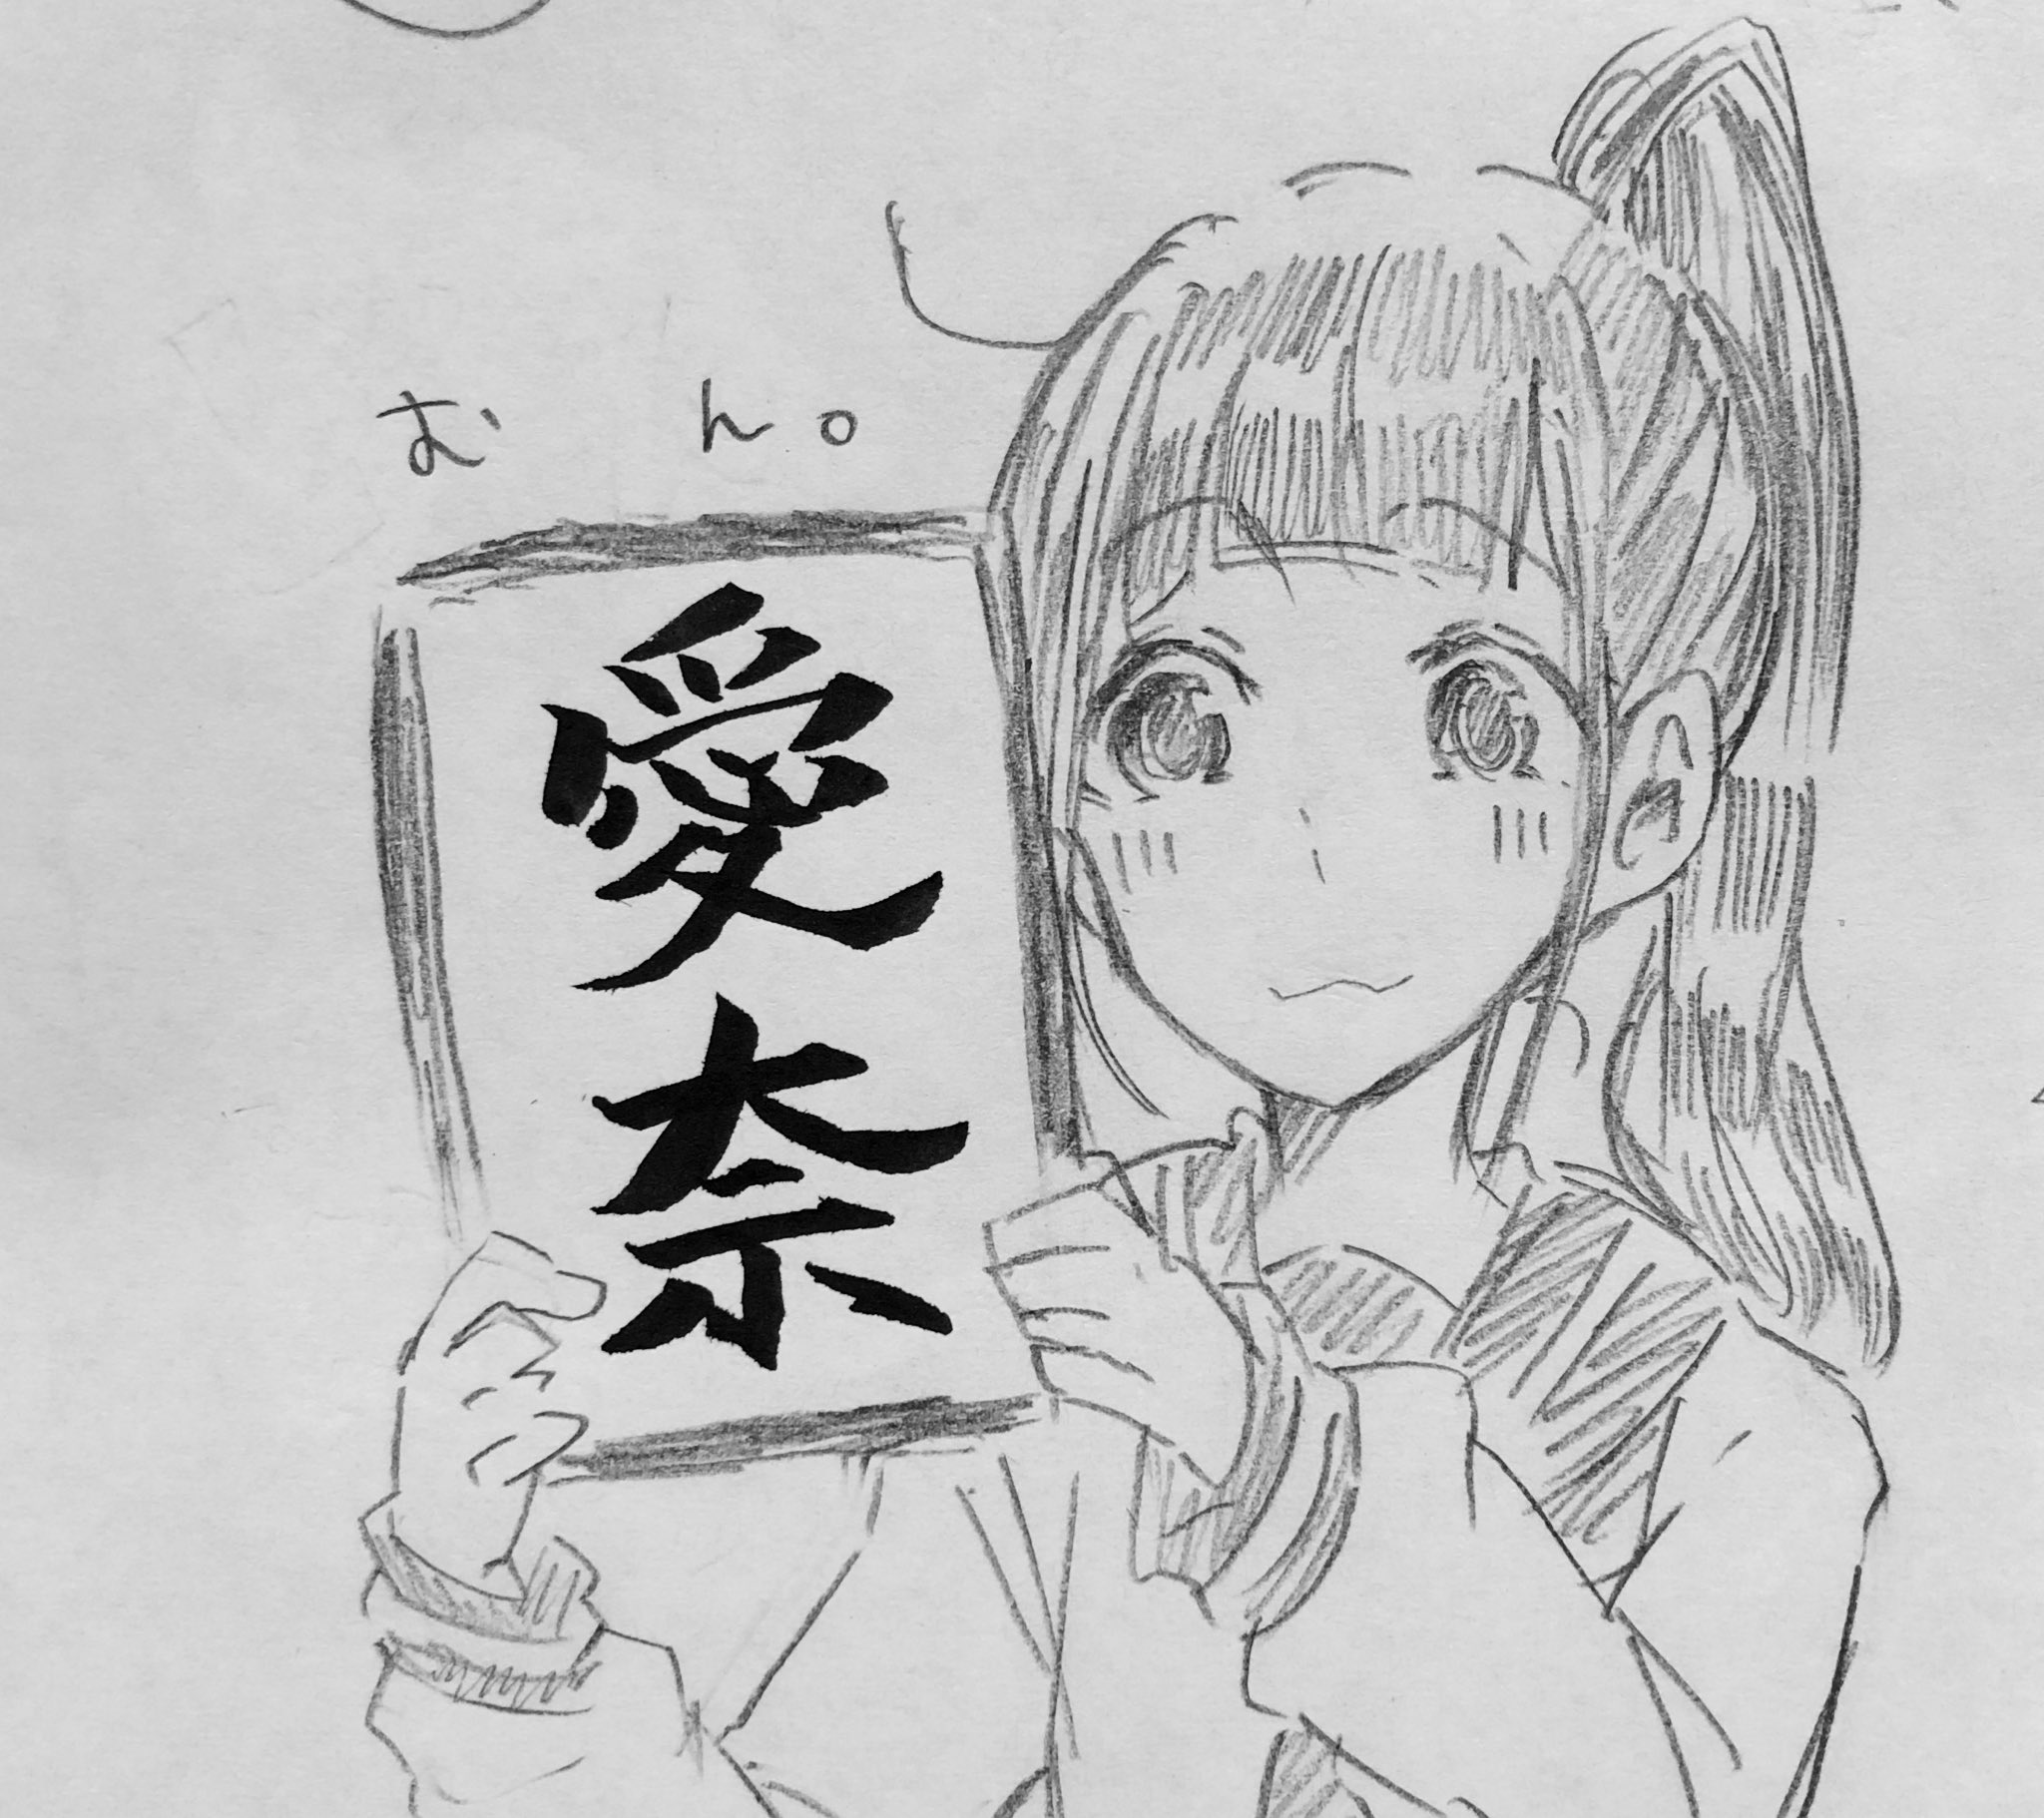 む ん。
愛奈